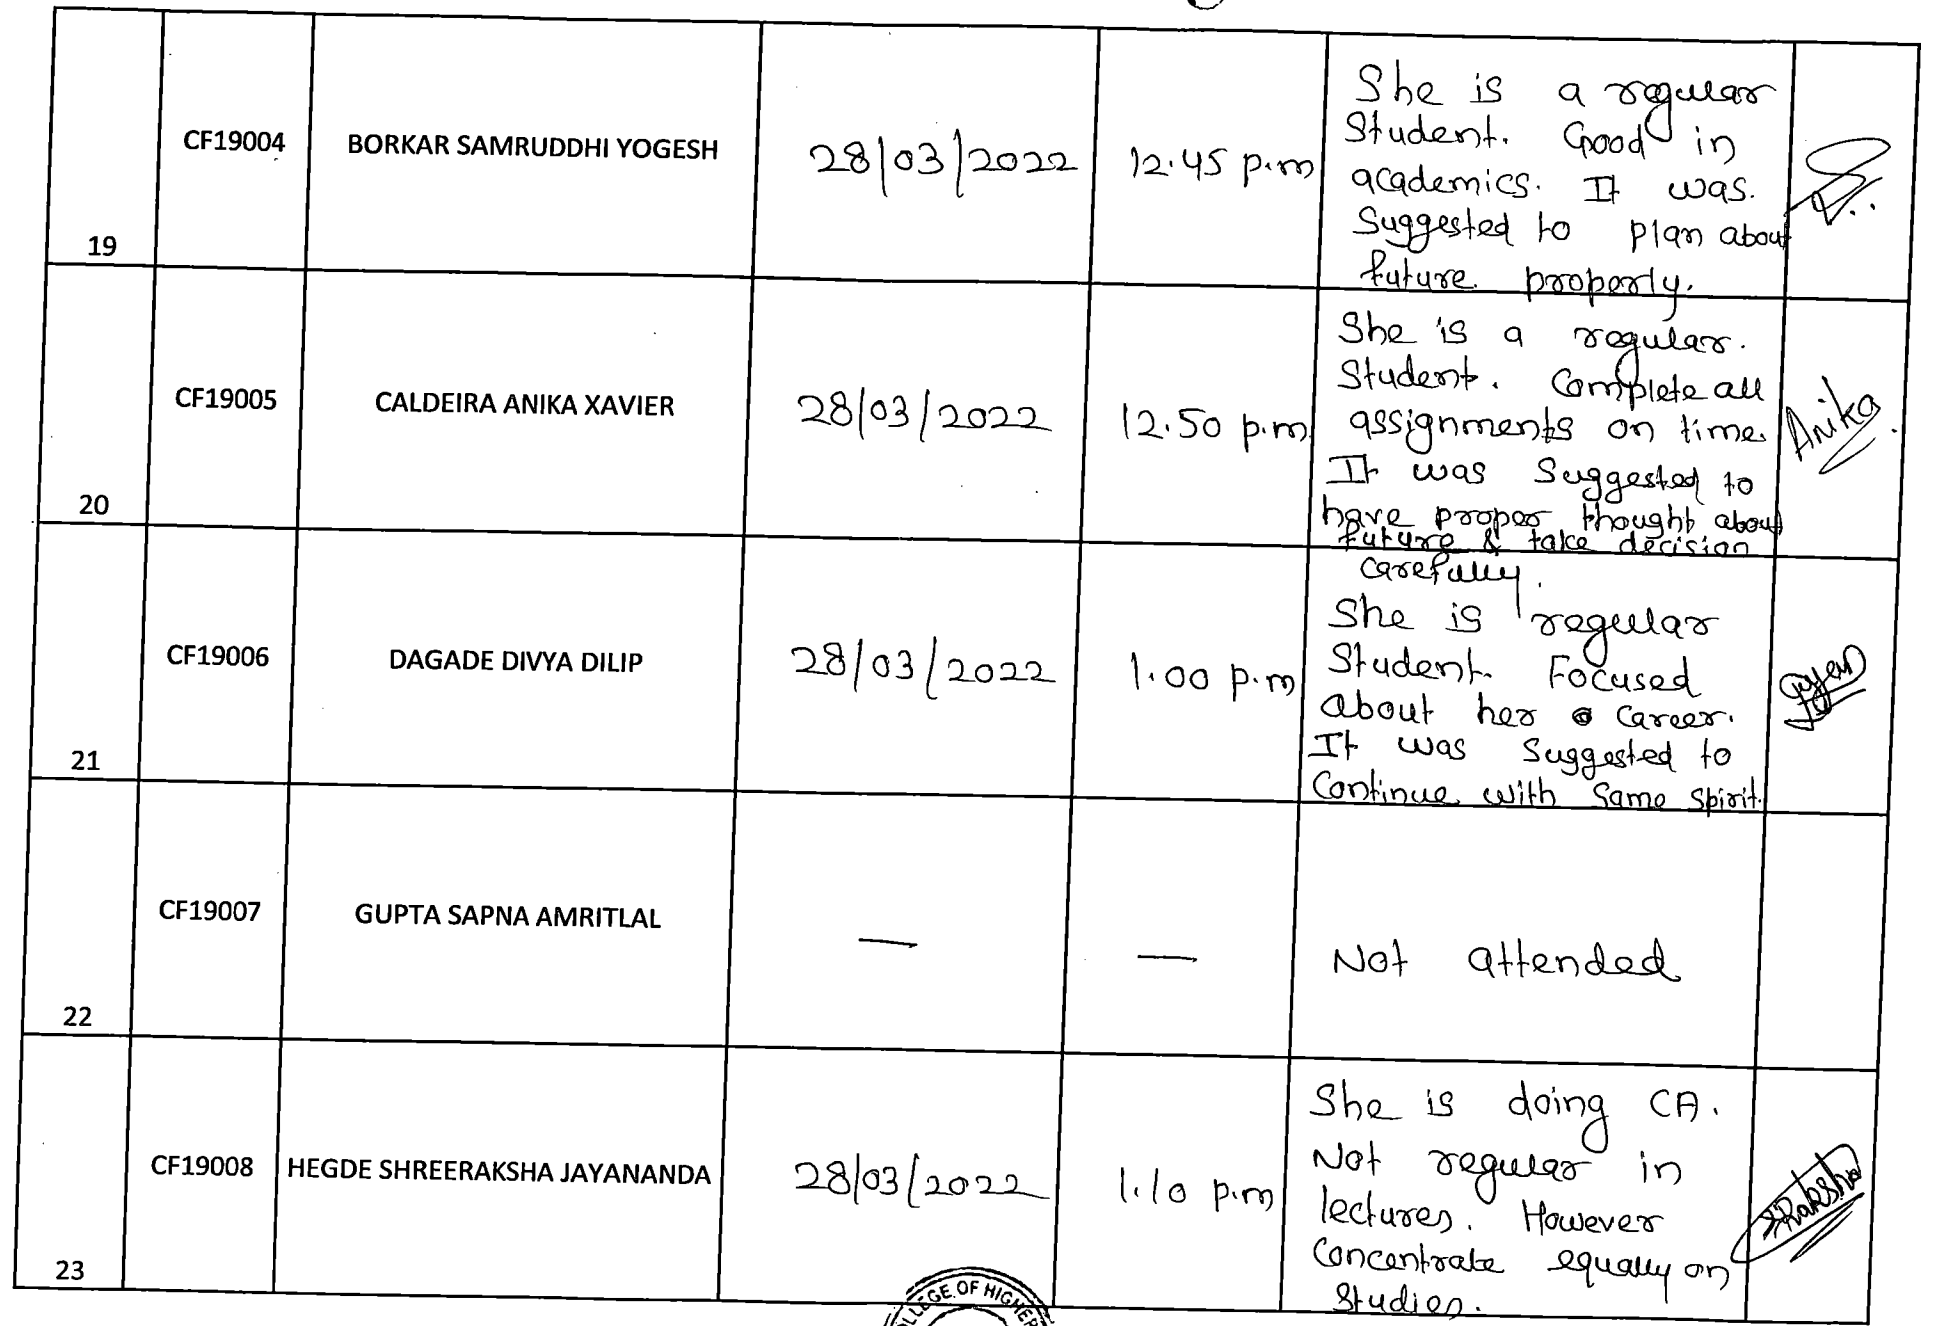 CF19004 BORKAR SAMRUDDHI YOGESH 28/03/2022 12.45 p.m
She is a regular
Student. Good in
academics. It was.
Suggested to plan about
future properly.
19
CF19005 CALDEIRA ANIKA XAVIER 28/03/2022 12.50 p.m
She is a regular.
Student. Complete all
assignments on time.
It was Suggested to
have proper thought about
future & take decision
carefully.
Anika
20
CF19006 DAGADE DIVYA DILIP 28/03/2022 1.00 p.m
She is regular
Student. Focused
about her career.
It was Suggested to
Continue with Same spirit.
21
CF19007 GUPTA SAPNA AMRITLAL — —
Not attended
22
CF19008 HEGDE SHREERAKSHA JAYANANDA 28/03/2022 1.10 p.m
She is doing CA.
Not regular in
lectures. However
Concentrate equally on
Studies.
Raksha
23
OF HIGHER